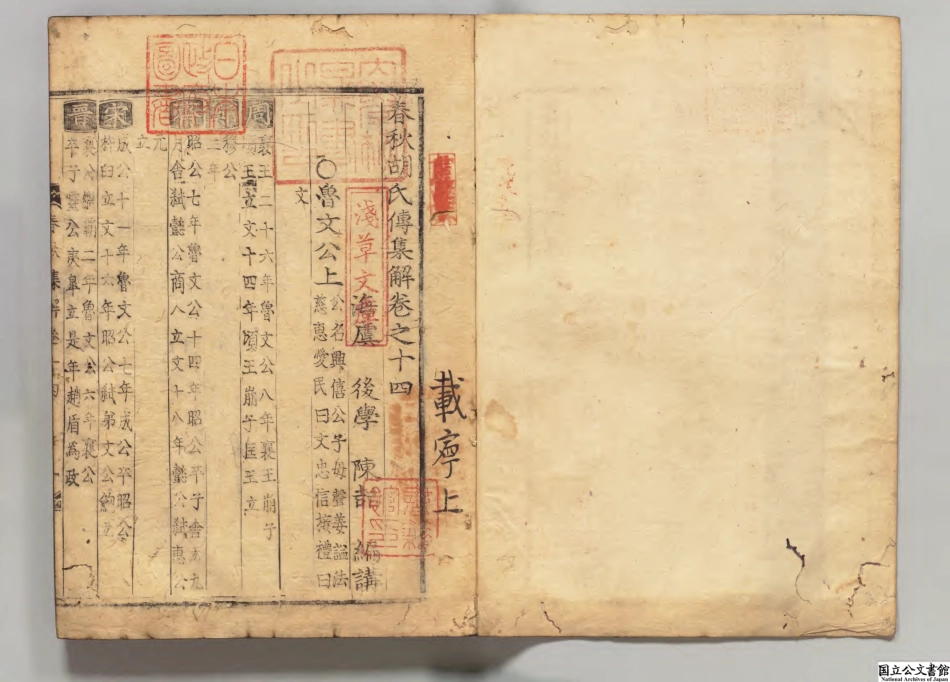 載寧上
春秋胡氏傳集解卷之十四
海虞 後學 陳喆 編講
淺草文庫
〇魯文公上
公名興僖公子母聲姜謚法
慈惠愛民曰文忠信接禮曰
文
周
襄王二十六年魯文公八年襄王崩子
頃王立文十四年頃王崩子匡王立
齊
昭公七年魯文公十四年昭公卒子舍立九
月舍弒懿公商人立文十八年懿公弒惠公
元
立
宋
成公十一年魯文公七年成公卒昭公
杵臼立文十六年昭公弒弟文公鮑立
晉
襄公二年魯文公六年襄公
卒子靈公夷皐立是年趙盾為政
国立公文書館
National Archives of Japan